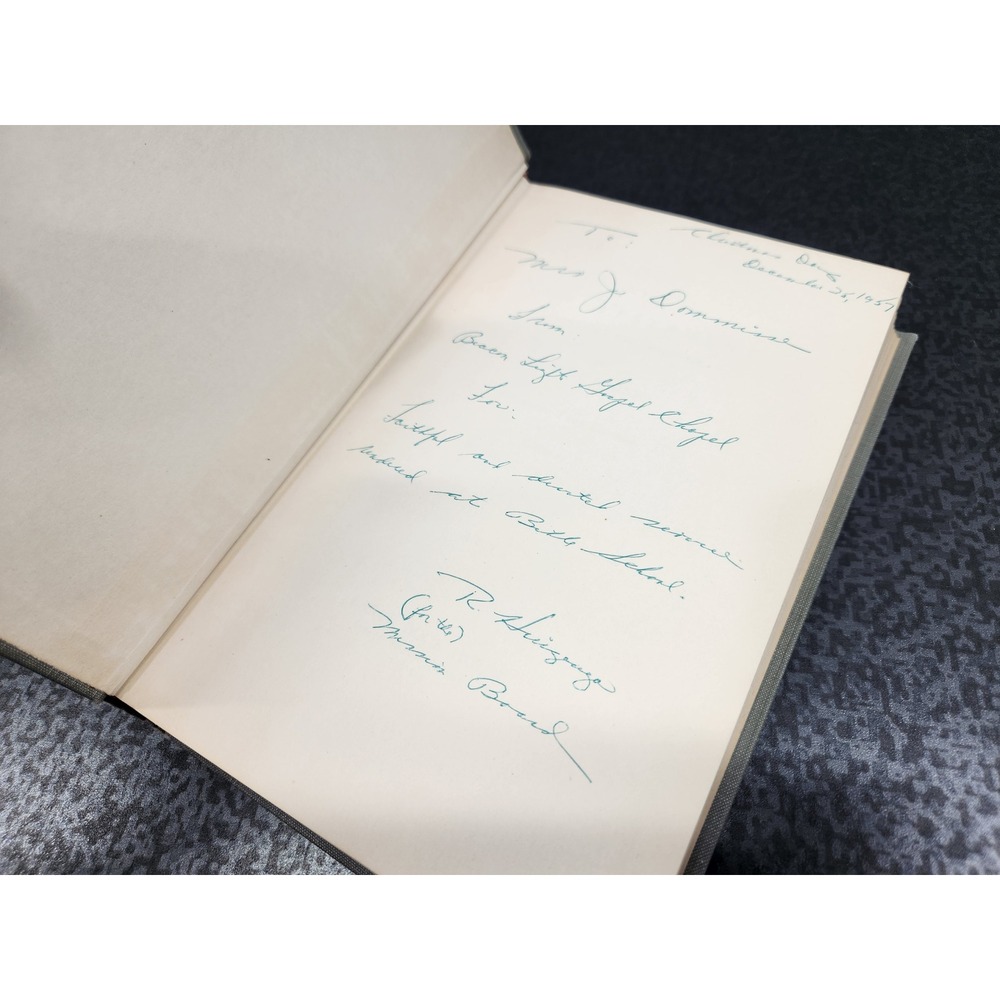 Christmas Day
December 25, 1957
To:
Mrs J Dommisse
From:
Beacon Light Gospel Chapel
For:
Faithful and devoted service
rendered at Bible School.
R. Huizenga
(for the)
Mission Board